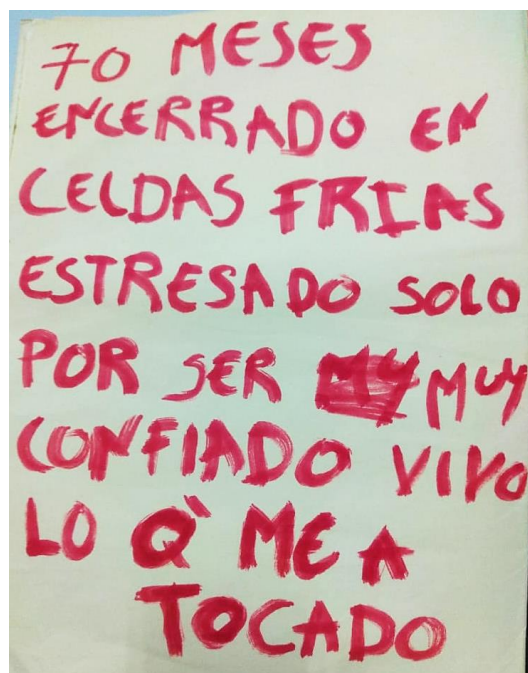 70 MESES
ENCERRADO EN
CELDAS FRIAS
ESTRESADO SOLO
POR SER MY MUY
CONFIADO VIVO
LO Q` ME A
TOCADO